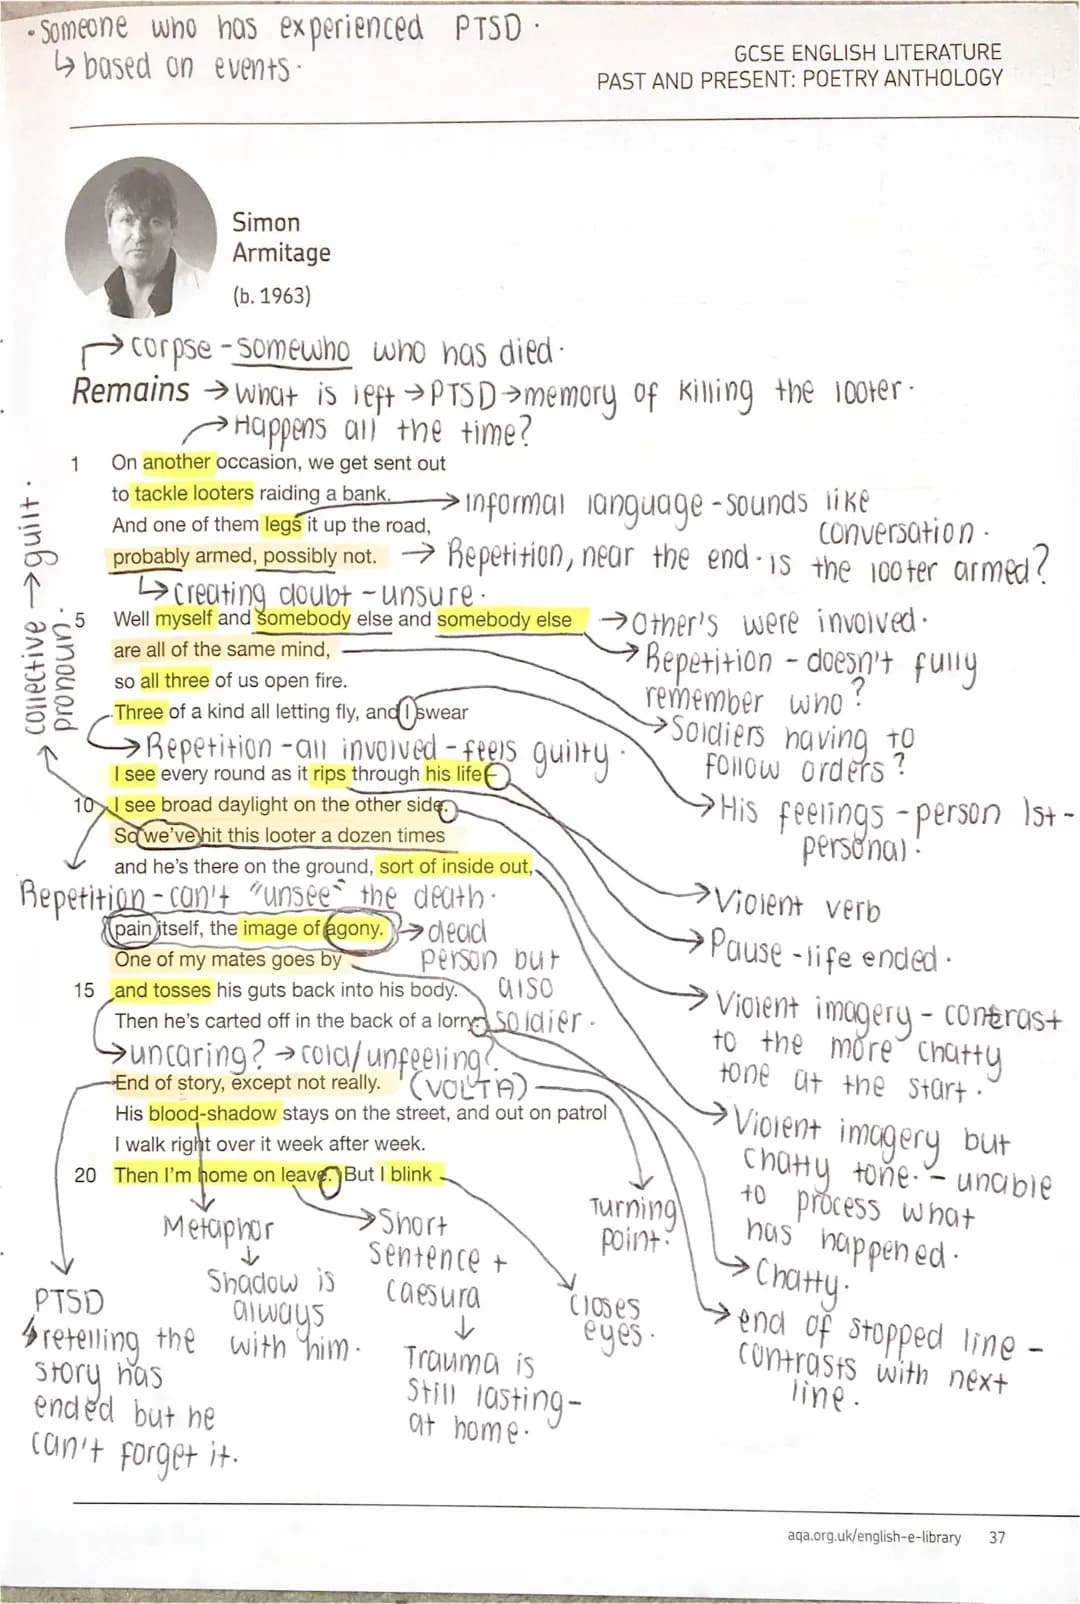 • Someone who has experienced PTSD.
↳ based on events.
GCSE ENGLISH LITERATURE
PAST AND PRESENT: POETRY ANTHOLOGY
Simon
Armitage
(b. 1963)
→ corpse - somewho who has died.
Remains → what is left → PTSD → memory of killing the looter.
→ Happens all the time?
1 On another occasion, we get sent out
to tackle looters raiding a bank.
→ informal language - sounds like
conversation.
And one of them legs it up the road,
probably armed, possibly not. → Repetition, near the end - is the looter armed?
↳ creating doubt - unsure.
collective → guilt.
pronoun.
5 Well myself and somebody else and somebody else → other's were involved.
are all of the same mind,
→ Repetition - doesn't fully
remember who?
so all three of us open fire.
Three of a kind all letting fly, and I swear
→ Soldiers having to
follow orders?
→ Repetition - all involved - feels guilty.
I see every round as it rips through his life –
10 I see broad daylight on the other side.
→ His feelings - person 1st -
personal.
So we've hit this looter a dozen times
and he's there on the ground, sort of inside out,
Repetition - can't "unsee" the death.
→ Violent verb
pain itself, the image of agony. → dead
person but
also
soldier.
→ Pause - life ended.
One of my mates goes by
15 and tosses his guts back into his body.
Then he's carted off in the back of a lorry.
→ Violent imagery - contrast
to the more chatty
tone at the start.
→ uncaring? → cold/unfeeling?
End of story, except not really. (VOLTA)
His blood-shadow stays on the street, and out on patrol
I walk right over it week after week.
20 Then I'm home on leave. But I blink
→ Violent imagery but
chatty tone. - unable
to process what
has happened.
Turning
point.
→ Chatty.
→ end of stopped line -
contrasts with next
line.
Metaphor
↓
Shadow is
always
with him.
→ Short
sentence +
caesura
↓
Trauma is
still lasting -
at home.
closes
eyes.
PTSD
↳ retelling the
story has
ended but he
can't forget it.
aqa.org.uk/english-e-library 37